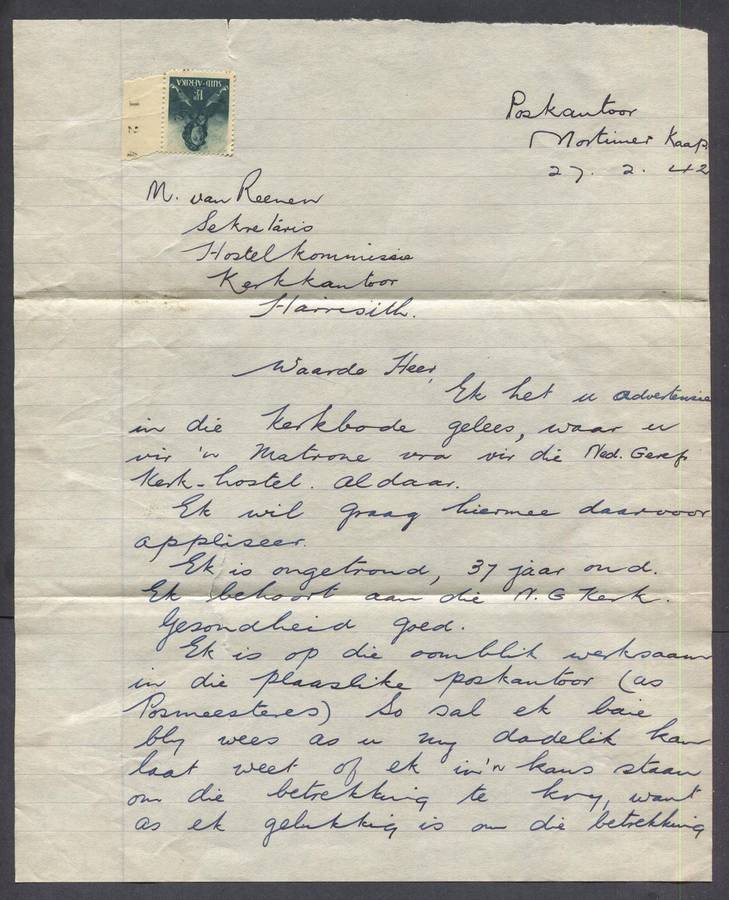 SUID-AFRIKA
1½D
1 2 4
Poskantoor
Mortimer Kaap.
27. 2. 42
M. van Reenen
Sekretaris
Hostelkommissie
Kerkkantoor
Harrisith.
Waarde Heer,
Ek het u advertensie
in die Kerkbode gelees, waar u
vir 'n Matrone vra vir die Ned. Geref.
Kerk-hostel. Aldaar.
Ek wil graag hiermee daarvoor
appliseer.
Ek is ongetroud, 37 jaar oud.
Ek behoort aan die N.G Kerk.
Gesondheid goed.
Ek is op die oomblik werksaam
in die plaaslike poskantoor (as
Posmeesteres) So sal ek baie
bly wees as u my dadelik kan
laat weet of ek in 'n kans staan
om die betrekking te kry, want
as ek gelukkig is om die betrekking